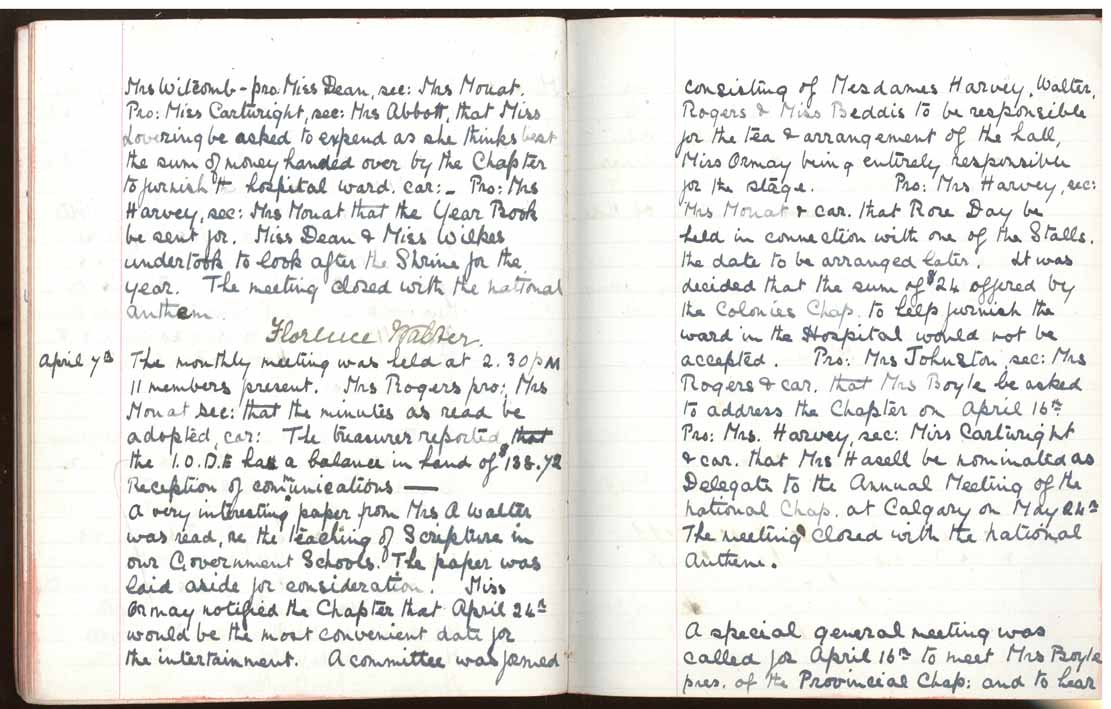 Mrs Witcomb - pro: Miss Dean, sec: Mrs Mouat.
Pro: Miss Cartwright, sec: Mrs Abbott, that Miss
Lovering be asked to expend as she thinks best
the sum of money handed over by the Chapter
to furnish the hospital ward. car:- Pro: Mrs
Harvey, sec: Mrs Mouat that the Year Book
be sent for. Miss Dean & Miss Wilkes
undertook to look after the Shrine for the
year. The meeting closed with the national
anthem.
Florence Walter.
April 7th The monthly meeting was held at 2.30 pm
11 members present. Mrs Rogers pro: Mrs
Mouat sec: that the minutes as read be
adopted, car: The treasurer reported that
the I.O.D.E has a balance in hand of $138.72
Reception of communications —
A very interesting paper from Mrs A Walter
was read, re the teaching of Scripture in
our Government Schools. The paper was
laid aside for consideration. Miss
Ormay notified the Chapter that April 24th
would be the most convenient date for
the intertainment. A committee was formed
consisting of Mesdames Harvey, Walter,
Rogers & Miss Beddis to be responsible
for the tea & arrangement of the hall,
Miss Ormay being entirely responsible
for the stage. Pro: Mrs Harvey, sec:
Mrs Mouat & car. that Rose Day be
held in connection with one of the Stalls.
the date to be arranged later. It was
decided that the sum of $24 offered by
the Colonies Chap. to help furnish the
ward in the Hospital would not be
accepted. Pro: Mrs Johnston, sec: Mrs
Rogers & car. that Mrs Boyle be asked
to address the Chapter on April 16th
Pro: Mrs. Harvey, sec: Miss Cartwright
& car. that Mrs Hasell be nominated as
Delegate to the Annual Meeting of the
national Chap. at Calgary on May 24th
The meeting closed with the national
Anthem.
A special general meeting was
called for April 16th to meet Mrs Boyle
pres. of the Provincial Chap: and to hear